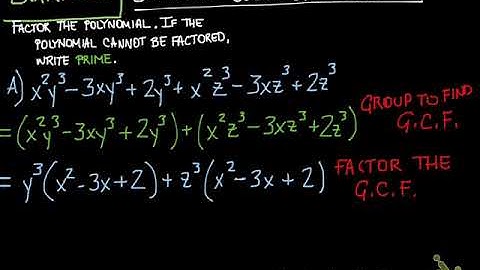 FACTOR THE POLYNOMIAL. IF THE
POLYNOMIAL CANNOT BE FACTORED,
WRITE PRIME.
A) x²y³-3xy³+2y³+x²z³-3xz³+2z³
=(x²y³-3xy³+2y³)+(x²z³-3xz³+2z³)
GROUP TO FIND
G.C.F.
=y³(x²-3x+2)+z³(x²-3x+2)
FACTOR THE
G.C.F.